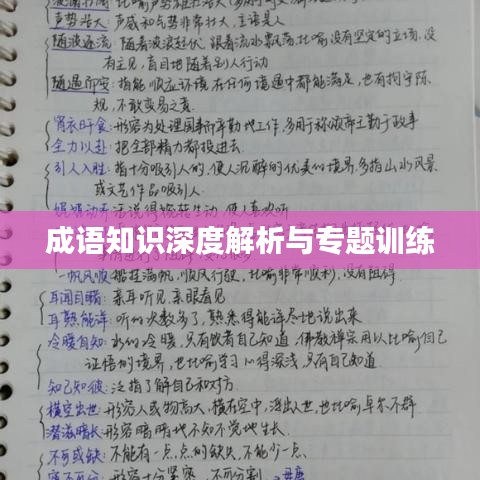 声势浩大：声威和气势非常壮大，主语是人
随波逐流：随着波浪起伏，跟着流水飘荡，比喻没有坚定的立场，没
有主见，盲目地随着别人行动
随遇而安：指能顺应环境，在任何境遇中都能满足，也有拘守陈
规，不敢变易之意。
宵衣旰食：形容为处理国事而辛勤地工作，多用于称颂帝王勤于政事
全力以赴：把全部精力都投进去
引人入胜：指十分吸引人的，使人沉醉的优美的境界，多指山水风景
或文艺作品吸引人
成语知识深度解析与专题训练
一帆风顺
耳闻目睹：亲耳听见，亲眼看见
耳熟能详：听的次数多了，熟悉得能详尽地说出来
冷暖自知：水的冷暖，只有饮者自己知道，佛教禅宗用以比喻自己
证悟的境界，也比喻学习心得深浅，只有自己知道
知己知彼：泛指了解自己和对方
横空出世：形容人或物高大，横在空中，浮出人世，也比喻卓尔不群
潜滋暗长：形容暗暗地不知不觉地生长
不可或缺：不能有一点点的缺失，不能少一点
密不可分：形容十分紧密，不可分割